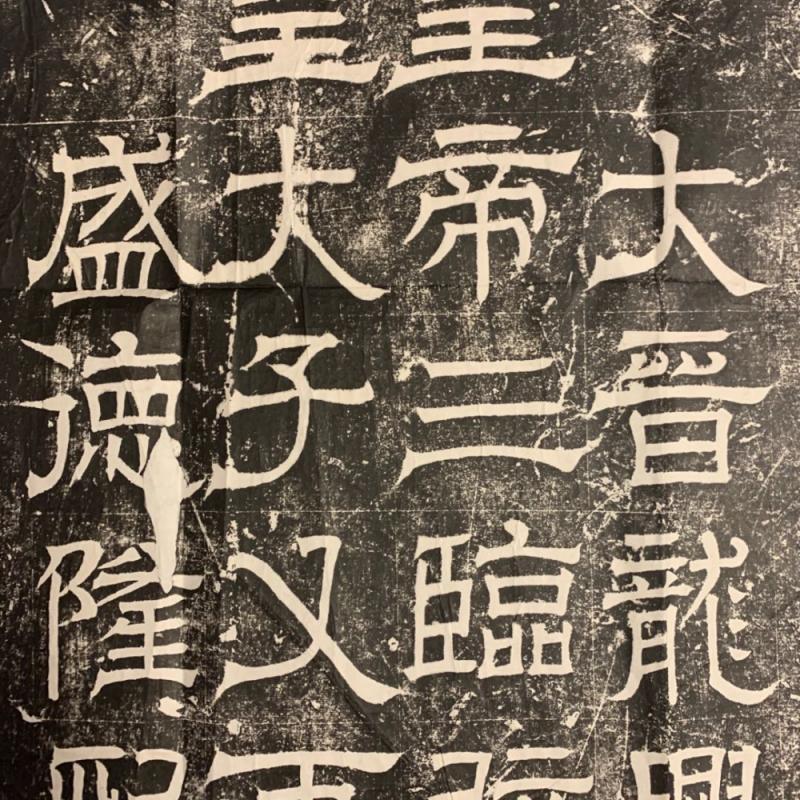 大晉龍興
皇帝三臨辟
皇大子又再
盛德隆熙